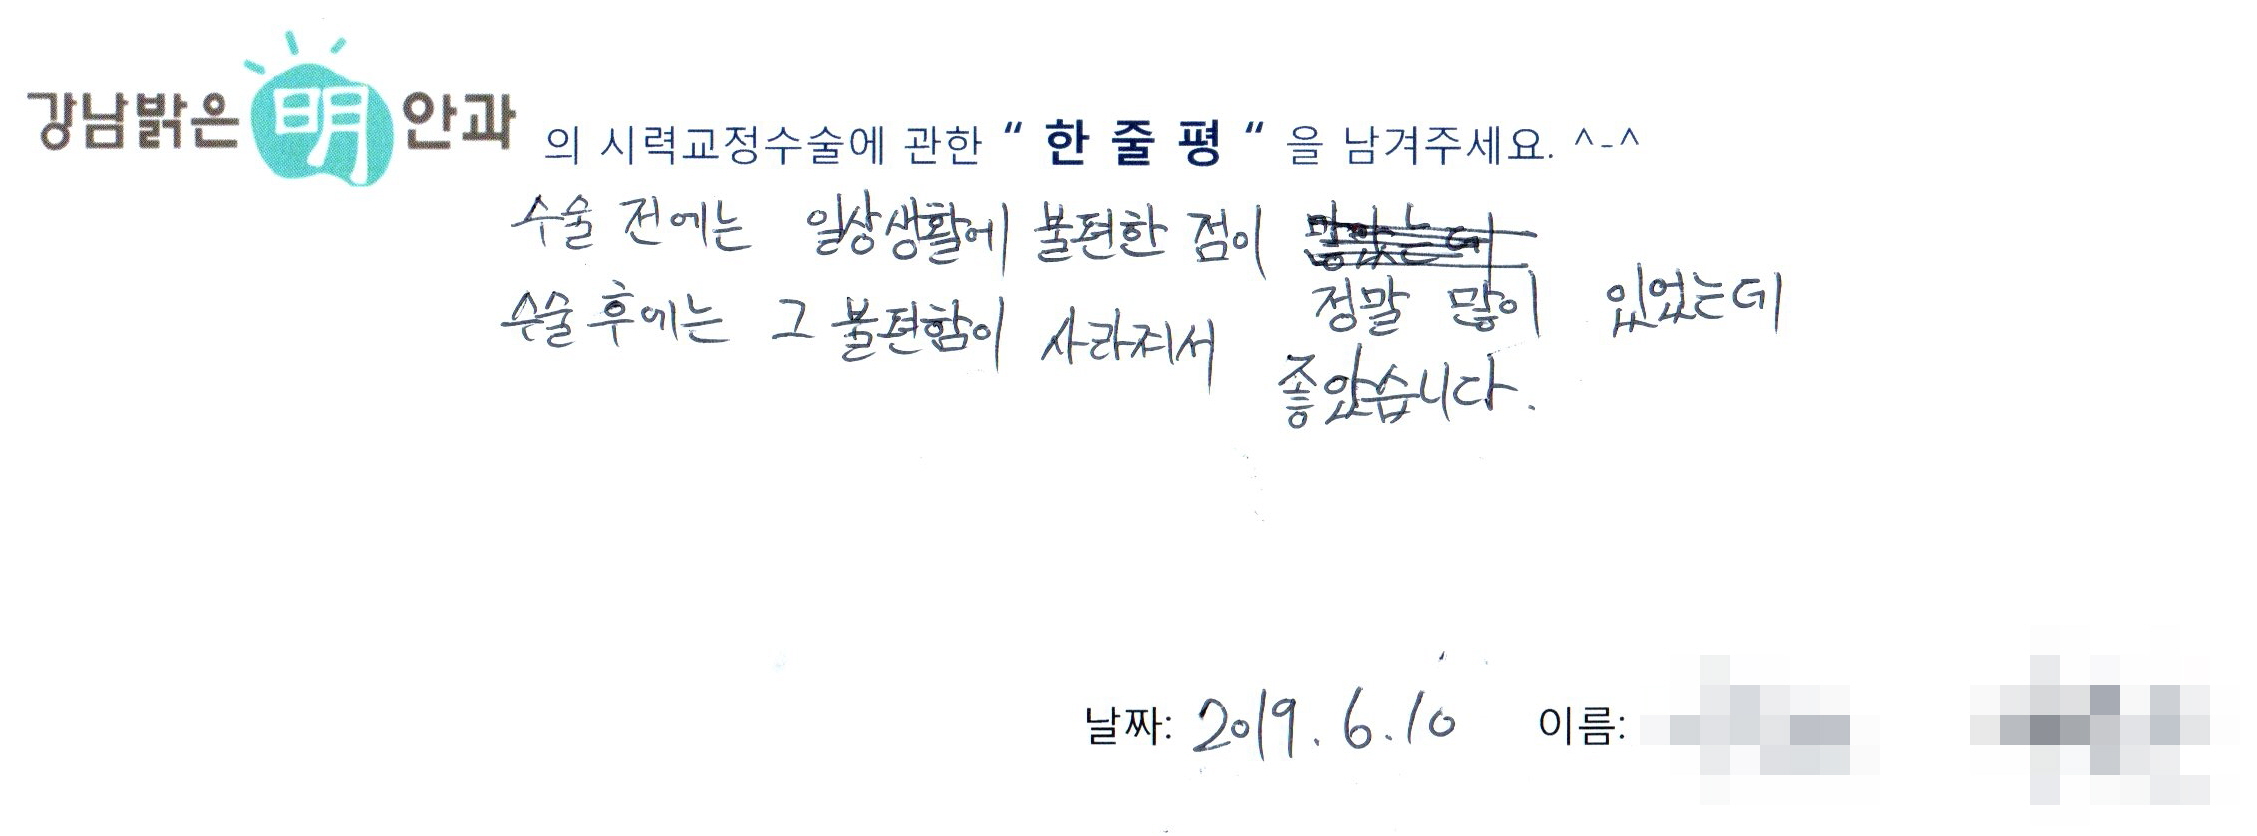 강남밝은明안과 의 시력교정수술에 관한 “ 한 줄 평 “ 을 남겨주세요. ^-^
수술 전에는 일상생활에 불편한 점이 많았는데
정말 많이 있었는데
수술후에는 그 불편함이 사라져서 좋았습니다.
날짜: 2019. 6. 10 이름: